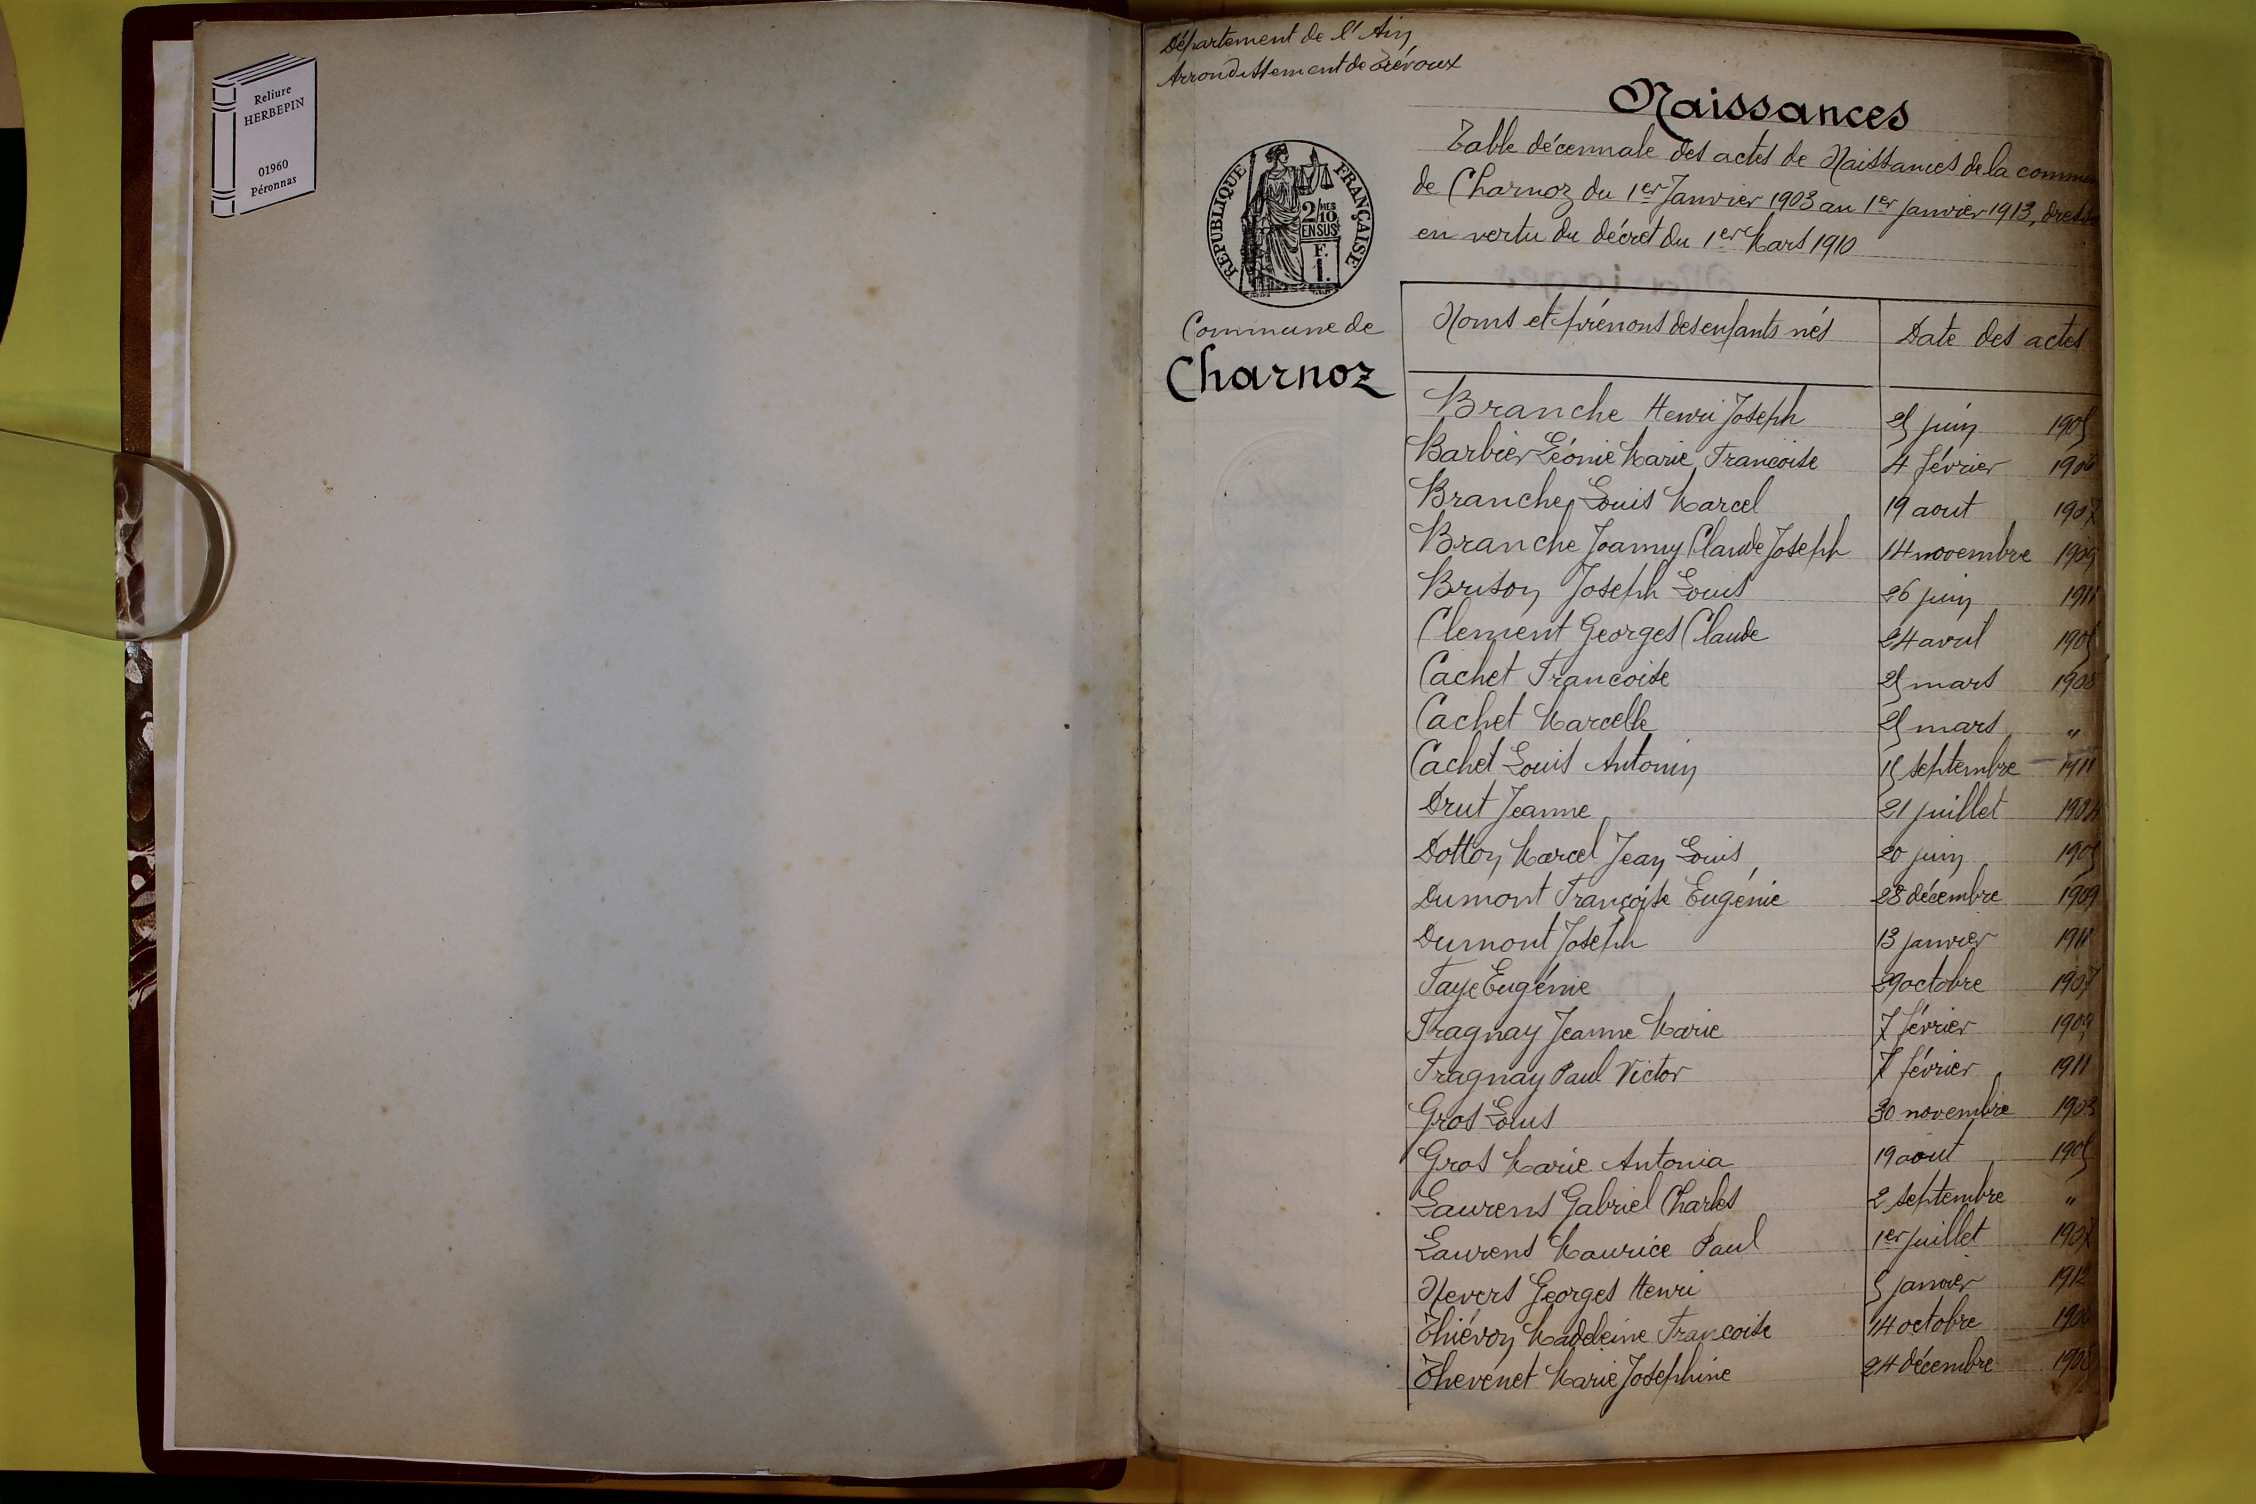 Reliure
HERBEPIN
01960
Péronnas
Département de l'Ain
Arrondissement de Trévoux
Naissances
Table décennale des actes de Naissances de la commune
de Charnoz du 1er Janvier 1903 au 1er janvier 1913, dressée
en vertu du décret du 1er Mars 1910
RÉPUBLIQUE FRANÇAISE
2/MES
10
EN SUS
F.
1.
Commune de
Charnoz
Noms et prénoms des enfants nés Date des actes
Branche Henri Joseph 25 juin 1905
Barbier Léonie Marie Francoise 4 février 1906
Branche Louis Marcel 19 aout 1907
Branche Joanny Claude Joseph 14 novembre 1909
Brison Joseph Louis 26 juin 1911
Clement Georges Claude 24 avril 1905
Cachet Francoise 25 mars 1908
Cachet Marcelle 25 mars "
Cachet Louis Antonin 15 septembre 1911
Drut Jeanne 21 juillet 1904
Dotton Marcel Jean Louis 20 juin 1905
Dumont Françoise Eugénie 28 décembre 1909
Dumont Joseph 13 janvier 1911
Faye Eugénie 29 octobre 1907
Fragnay Jeanne Marie 7 février 1909
Fragnay Paul Victor 7 février 1911
Gros Louis 30 novembre 1903
Gros Marie Antonia 19 aout 1905
Laurens Gabriel Charles 2 septembre "
Laurens Maurice Paul 1er juillet 1907
Nevers Georges Henri 5 janvier 1912
Thiévon Madeleine Francoise 14 octobre
Thevenet Marie Josephine 24 décembre 1908